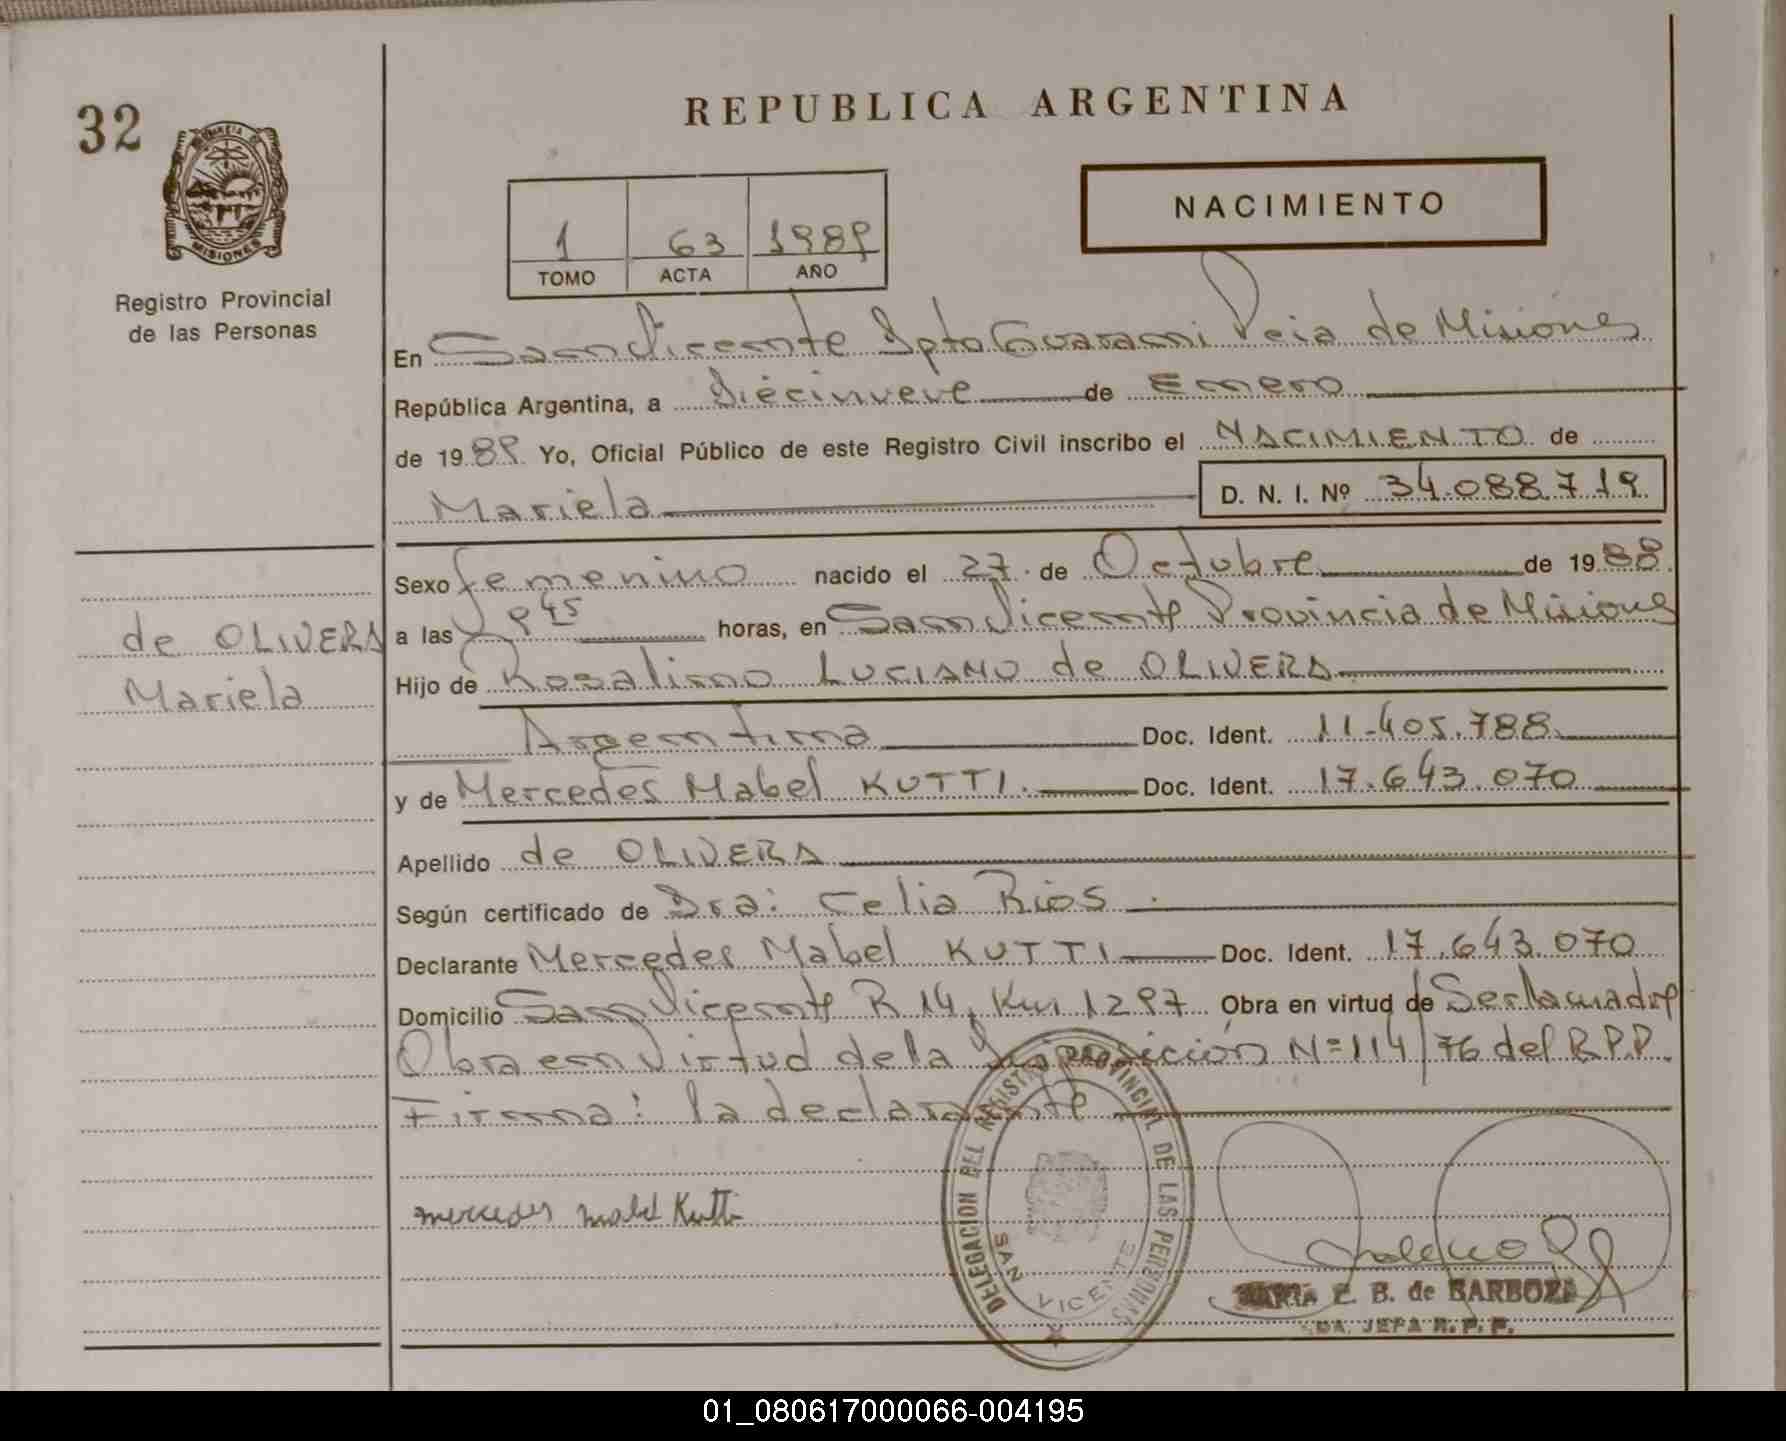 REPUBLICA ARGENTINA
32
MISIONES
Registro Provincial
de las Personas
NACIMIENTO
1 63 1989
TOMO ACTA AÑO
En San Vicente Dpto Guarani Pcia de Misiones
República Argentina, a Diecinueve de Enero
de 1989 Yo, Oficial Público de este Registro Civil inscribo el NACIMIENTO de
Mariela D. N. I. Nº 34.088.719
Sexo femenino nacido el 27 de Octubre de 1988
de OLIVERA
Mariela
a las 9 45 horas, en San Vicente Provincia de Misiones
Hijo de Rosalino LUCIANO de OLIVERA
Argentina Doc. Ident. 11.405.788
y de Mercedes Mabel KUTTI. Doc. Ident. 17.643.070
Apellido de OLIVERA
Según certificado de Dra: Celia Rios
Declarante Mercedes Mabel KUTTI Doc. Ident. 17.643.070
Domicilio San Vicente R 14, Km 1297 Obra en virtud de Ser la madre
Obra en Virtud de la Disposición N=114/76 del R.P.P.
Firma: la declarante
mercedes mabel Kutti
DELEGACION DEL REGISTRO PROVINCIAL DE LAS PERSONAS
SAN VICENTE
MARIA E. B. de BARBOZA
JEFA R. P. P.
01_080617000066-004195